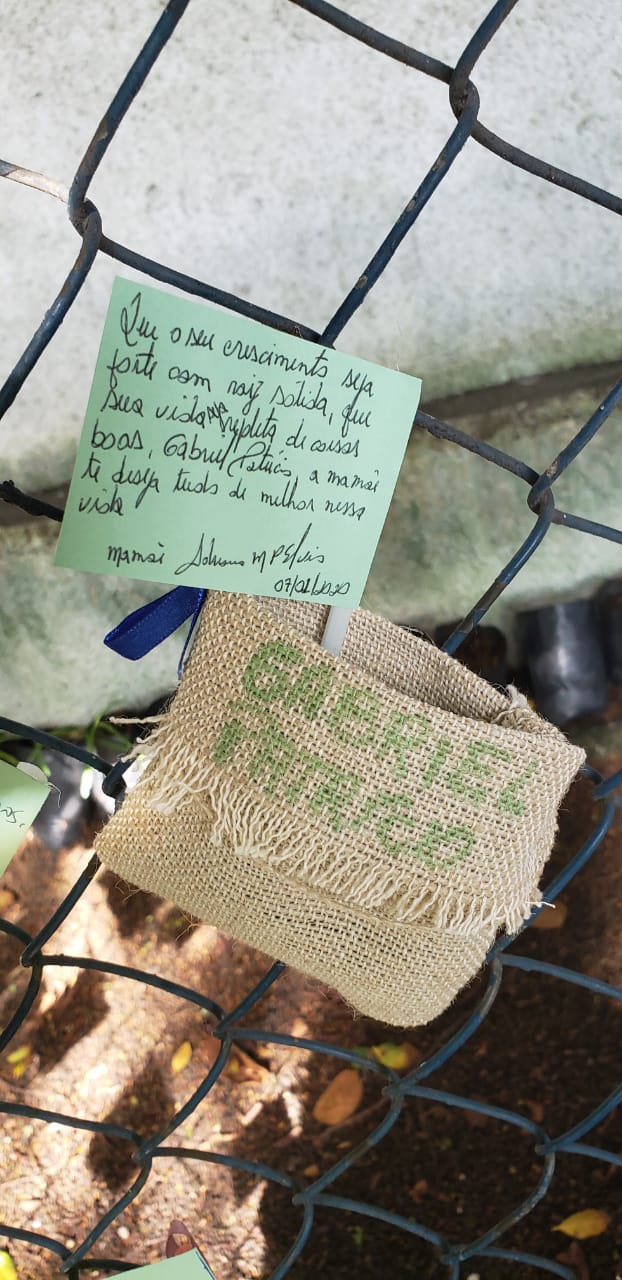 Que o seu crescimento seja
forte com raiz sólida, que
sua vida seja repleta de coisas
boas, Gabriel Patrício, a mamãe
te deseja tudo de melhor nessa
vida
mamãe
07/02/2020
GABRIEL
PATRICIO